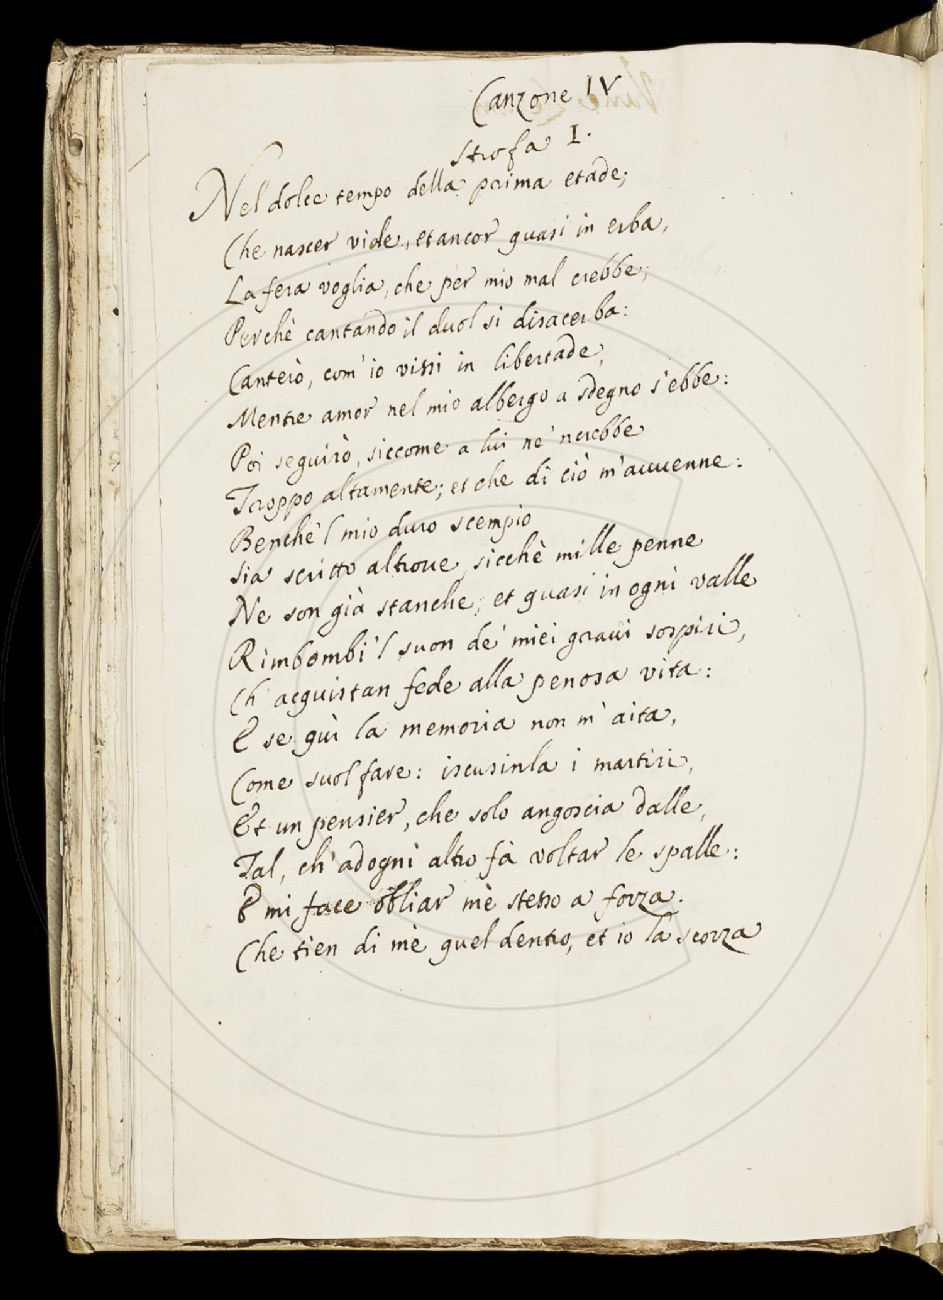 Canzone IV
Strofa I.
Nel dolce tempo della prima etade;
Che nascer vide, et ancor quasi in erba,
La fera voglia, che per mio mal crebbe;
Perchè cantando il duol si disacerba:
Canterò, com' io vissi in libertade,
Mentre amor nel mio albergo a sdegno s'ebbe:
Poi seguirò, siccome a lui ne' ncrebbe
Troppo altamente; et che di ciò m'avvenne:
Benche 'l mio duro scempio
Sia scritto altrove, sicchè mille penne
Ne son già stanche; et quasi in ogni valle
Rimbombi 'l suon de' miei gravi sospiri,
Ch' acquistan fede alla penosa vita:
E se quì la memoria non m' aita,
Come suol fare: iscusinla i martiri,
Et un pensier, che solo angoscia dalle,
Tal, ch' adogni altro fà voltar le spalle:
E mi face obliar mè stesso a forza.
Che tien di mè quel dentro, et io la scorza